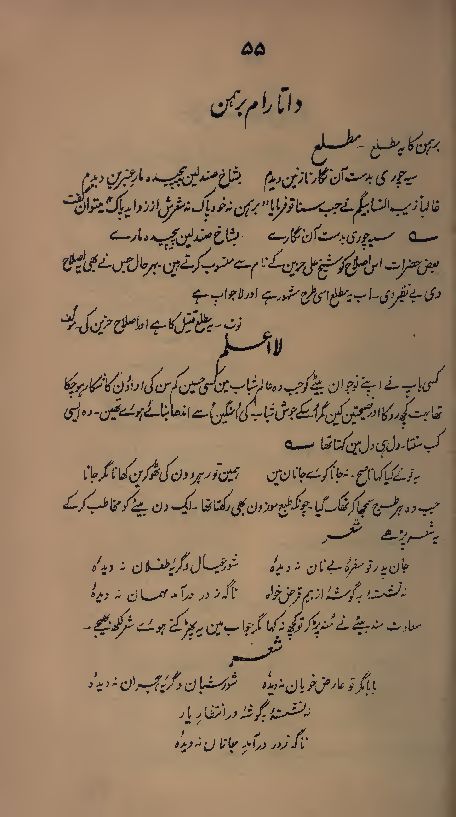 ۵۵
داتا رام برہمن
برہمن کا یہ مطلع - مطلع
سیہ چوری بدست آن نگار نازنین دیدم بشاخ صندلین پیچیدہ مار عنبرین دیدم
غالباً زیب النسا بیگم نے جب سنا تو فرمایا" برہمن نہ خود پاک نہ شعرش ازو پاک" میتوان گفت
سیہ چوری بدست آن نگارے بشاخ صندلین پیچیدہ مارے
بعض حضرات اس اصلاح کو شیخ علی حزین کے نام سے منسوب کرتے ہین۔ بہر حال جس نے بھی یہ اصلاح
دی بے نظیر دی۔ اب یہ مطلع اسی طرح مشہور ہے اور لاجواب ہے
نوٹ - یہ مطلع قتیل کا ہے اور اصلاح حزین کی۔ مولف
لا اعلم
کسی باپ نے اپنے نوجوان بیٹے کو جب وہ عالم شباب مین کسی حسین کم سن کی اداؤن کا شکار ہو چکا
تھا بہت کچھ روکا اور نصیحتین کین مگر اُسکے جوش شباب کی اُمنگین اُسے اندھا بنائے ہوئے تھین۔ وہ ایسی
کب سنتا۔ دل ہی دل مین کہتا تھا
یہ تونے کیا کہا ناصح۔ نہ جانا کوئے جانان مین ہمین تو رہروون کی ٹھوکرین کھانا مگر جانا
جب وہ ہر طرح سمجھا کر تھک گیا۔ چونکہ طبع موزون بھی رکھتا تھا۔ ایک دن بیٹے کو مخاطب کر کے
یہ شعر پڑھے شعر
جان پدر تو سفرۂ بے نان نہ دیدۂ شور عیال و گریۂ طفلان نہ دیدۂ
نہ نشستۂ بگوشۂ از بیم قرض خواہ ناگہ ز در درآمد مہمان نہ دیدۂ
سعادت مند بیٹے نے مُنہ پر تو کچھ نہ کہا مگر جواب مین یہ پھڑکتے ہوئے شعر لکھ بھیجے۔
شعر
بابا مگر تو عارض خوبان نہ دیدۂ شور شبان و گریۂ ہجران نہ دیدۂ
نہ نشستۂ بگوشۂ در انتظار یار
ناگہ ز در درآمد جانان نہ دیدۂ